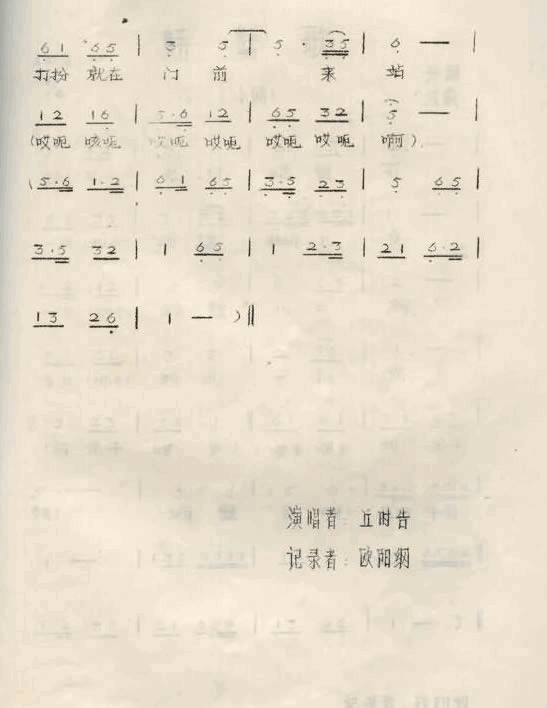 6 1 6 5 | 3 5 | 5 · 3 5 | 6 — |
打扮 就在 门 前 来 站
1 2 1 6 | 5 · 6 1 2 | 6 5 3 2 | 5 — |
(哎呃 咳呃 哎呃 哎呃 哎呃 哎呃 啊)
(5 · 6 1 · 2 | 6 · 1 6 5 | 3 · 5 2 3 | 5 6 5 |
3 · 5 3 2 | 1 6 5 | 1 2 · 3 | 2 1 6 · 2 |
1 3 2 6 | 1 — ) ‖
演唱者: 丘时告
记录者: 欧阳纲